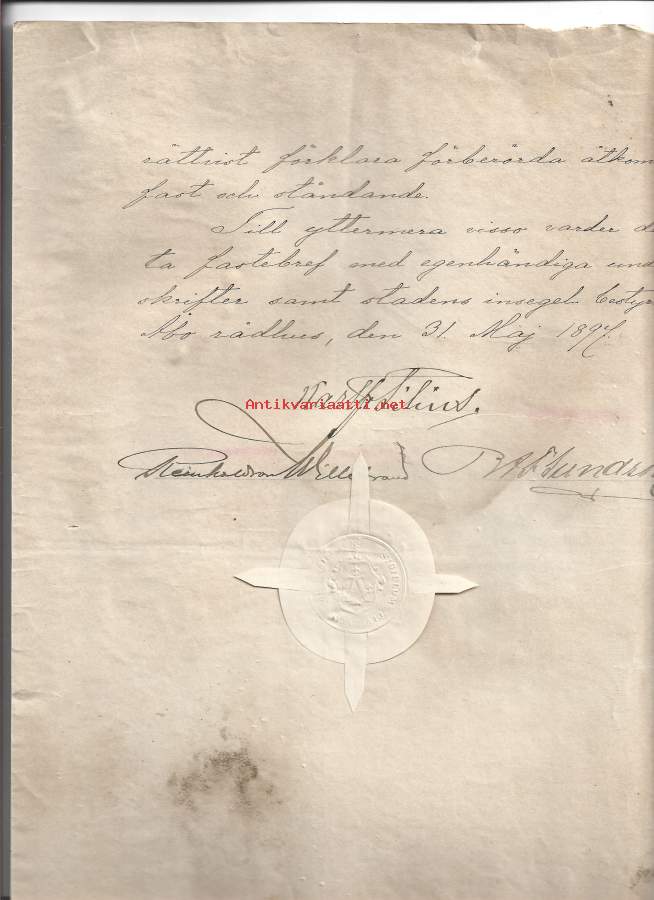 rättvist förklara förberörda åtkom
fast och ståndande.
Till yttermera visso varder de
ta fastebref med egenhändiga und
skrifter samt stadens insegel bestyr
Åbo rådhus, den 31. Maj 1897.
Antikvariaatti.net